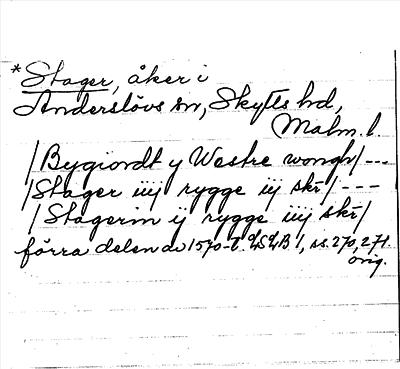 *Stager, åker i
Anderslövs sn, Skytts hd,
Malm. l.
/Bygiordt y Westre wongh/ ---
/Stager iiij rygge iij skr/ ---
/Stagerin ij rygge iiij skr/
förra delen av 1570-t. LSLB 1, ss. 270, 271
orig.